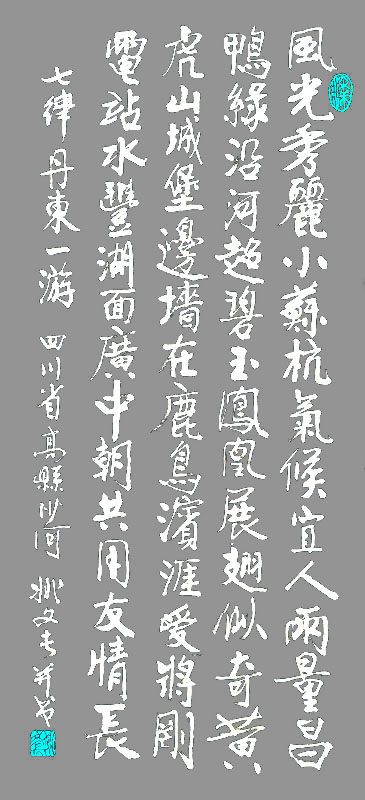 風光秀麗小蘇杭氣候宜人雨量昌
鴨綠沿河超碧玉鳳凰展翅似奇黃
虎山城堡邊墻在鹿鳥濱涯愛將剛
電站水豐湖面廣中朝共用友情長
七律 丹東一游 四川省高縣沙河 姚文并书